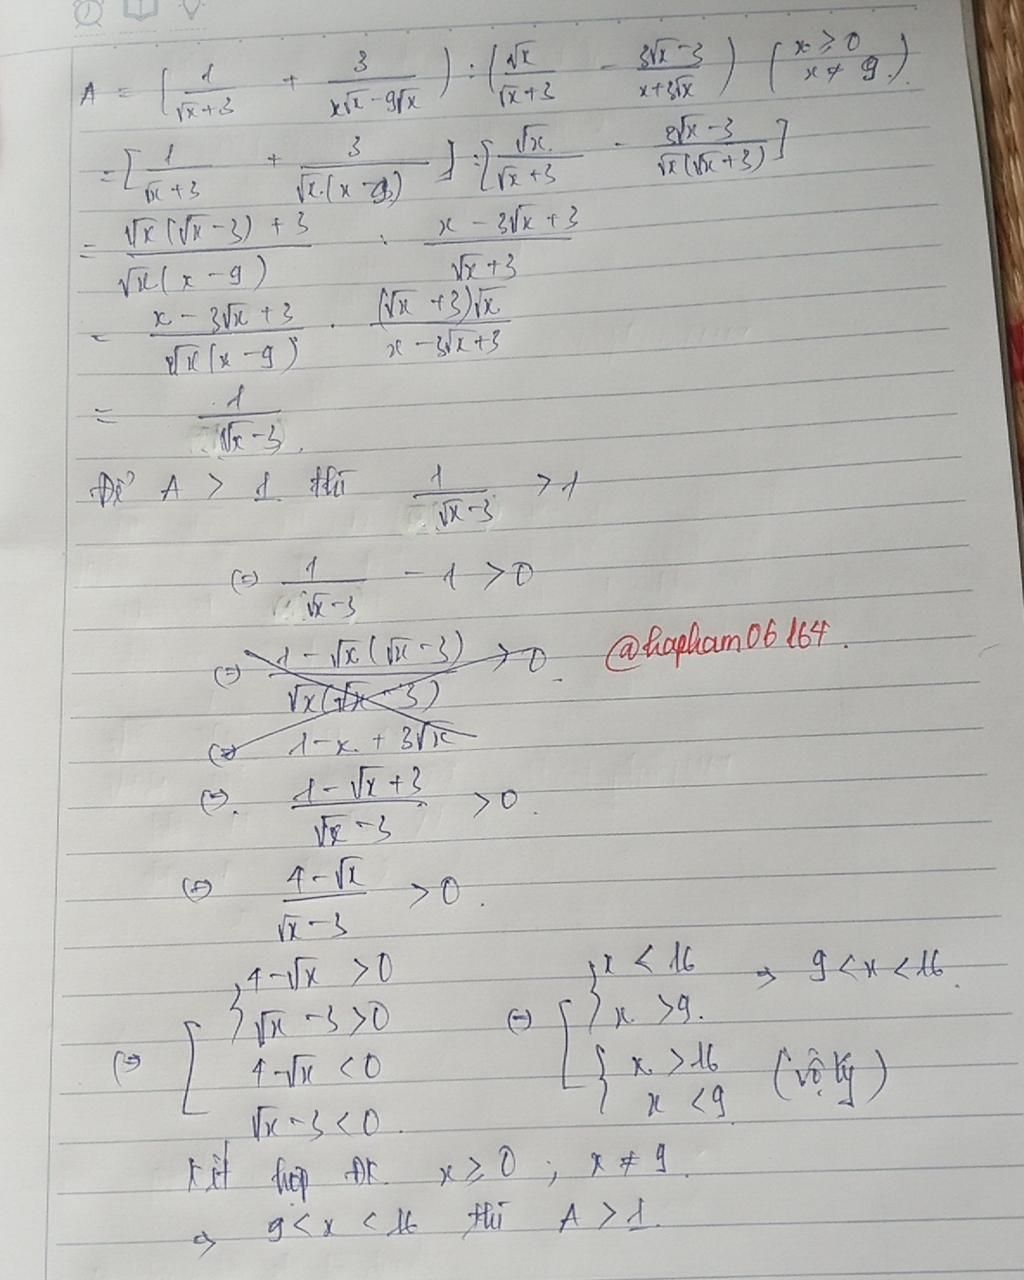 A = (1/(√x+3) + 3/(x√x-9√x)) : (√x/(√x+3) - (3√x-3)/(x+3√x)) (x ≥ 0 x ≠ 9)
= [1/(√x+3) + 3/(√x.(x-9))] : [√x/(√x+3) - (3√x-3)/(√x(√x+3))]
= (√x(√x-3)+3)/(√x(x-9)) : (x-3√x+3)/(√x+3)
= (x-3√x+3)/(√x(x-9)) . ((√x+3)√x)/(x-3√x+3)
= 1/(√x-3).
Để A > 1 thì 1/(√x-3) > 1
(=) 1/(√x-3) - 1 > 0
(=) (1-√x(√x-3))/(√x(√x-3)) > 0.
@hapham06164.
(=) 1-x. + 3√x
(=). (1-√x+3)/(√x-3) > 0.
(=) (4-√x)/(√x-3) > 0.
(=) [ { 4-√x > 0 (=) [ { x < 16 => 9 < x < 16.
√x-3 > 0 x > 9.
4-√x < 0 { x > 16 (vô lý)
√x-3 < 0. x < 9
Kết hợp ĐK x ≥ 0 ; x ≠ 9.
=> 9 < x < 16 thì A > 1.